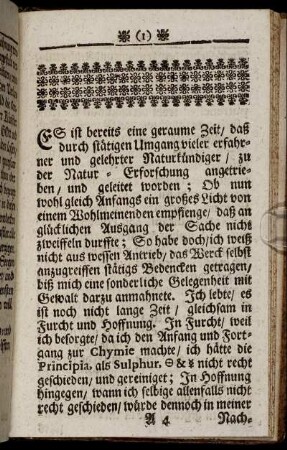 (1)
ES ist bereits eine geraume Zeit/ daß
durch stätigen Umgang vieler erfahr-
ner und gelehrter Naturkündiger/ zu
der Natur-Erforschung angetrie-
ben/ und geleitet worden; Ob nun
wohl gleich Anfangs ein großes Licht von
einem Wohlmeinenden empfienge/ daß an
glücklichen Ausgang der Sache nicht
zweiffeln durffte; So habe doch/ ich weiß
nicht aus wessen Antrieb/ das Werck selbst
anzugreiffen stätigs Bedencken getragen/
biß mich eine sonderliche Gelegenheit mit
Gewalt darzu anmahnete. Ich lebte/ es
ist noch nicht lange Zeit/ gleichsam in
Furcht und Hoffnung. In Furcht/ weil
ich besorgte/ da ich den Anfang und Fort-
gang zur Chymie machte/ ich hätte die
Principia. als Sulphur. ⊖ & ☿ nicht recht
geschieden/ und gereiniget; In Hoffnung
hingegen/ wann ich selbige allenfalls nicht
recht geschieden/ würde dennoch in meiner
A 4 Nach-